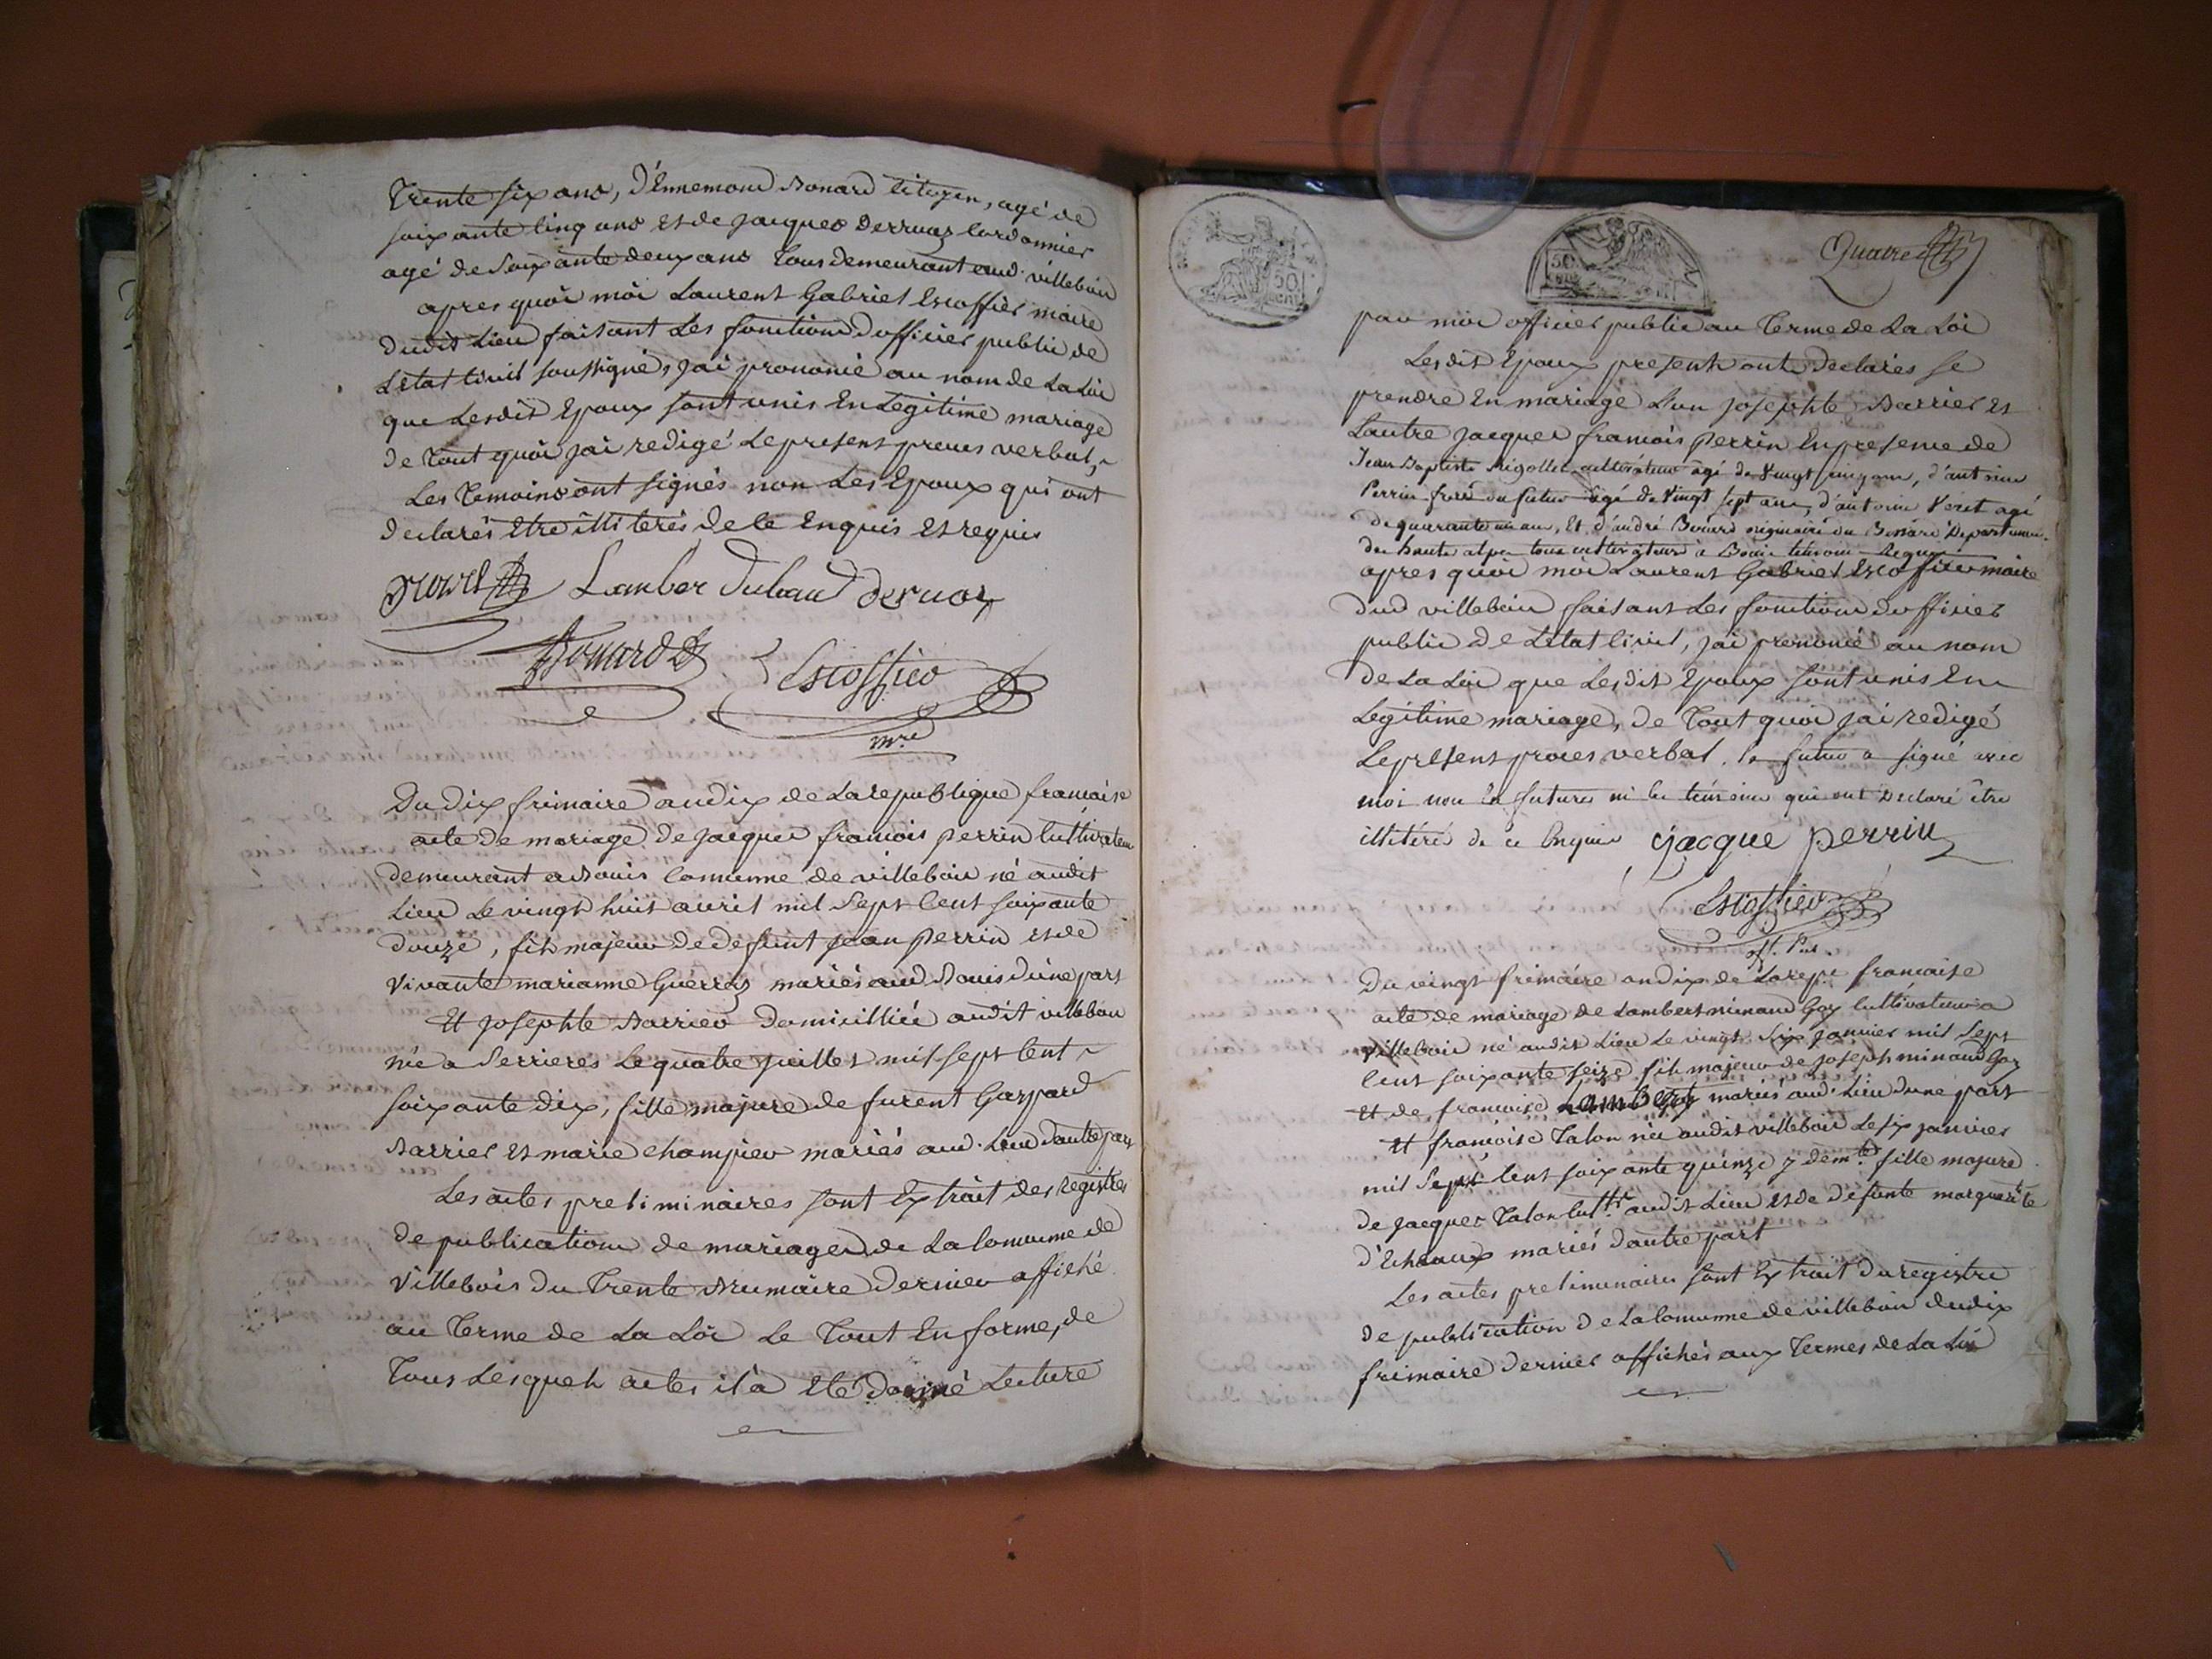 Trente six ans, d'Ennemond Bonard Citoyen, agé de
soixante cinq ans et de jacques Derruaz Cordonnier
agé de Soixante deux ans Tous demeurant aud. villebois
apres quoi moi Laurent Gabriel Escoffier maire
dudit Lieu faisant Les fonctions d'officier public de
L'état Civil soussigné, jai prononcé au nom de La Loi
que Lesdit Epoux sont unis En Légitime mariage
de Tout quoi jai redigé Le present proces verbal,
Les Temoins ont signés non Les Epoux qui ont
declarés Etre illiterés de Ce Enquis et requis
Lamber Duband deruaz
Bonard Escoffier
mre
Du dix frimaire an dix de La republique francaise
acte de mariage de jacques francois perrin Cultivateur
demeurant a Bouis Commune de villebois né audit
Lieu Le vingt huit avril mil Sept Cent soixante
douze, fils majeur de defunt jean perrin et de
vivante marianne Guerraz mariés aud Bouis d'une part
Et josephte Barrier domicilliée audit villebois
née a Serrieres Le quatre juillet mil sept Cent
soixante dix, fille majure de furent Gaspard
Barrier et marie Champier mariés aud. Lieu d'autre part
Les actes preliminaires sont Extrait des registres
de publications de mariages de La Commune de
villebois du Trente Brumaire dernier affiché
au Terme de La Loi Le Tout En forme, de
Tous Lesquels actes il a Eté donné Lecture
Quatre
50
50
par moi officier public au Terme de La Loi
Lesdit Epoux presents ont declarés se
prendre En mariage L'un josephte Barrier et
L'autre jacques francois perrin En presence de
Jean Baptiste Rigollet cultivateur agé de vingt cinq ans, d'antoine
Perrin frere du futur agé de vingt sept ans, d'antoine Veret agé
de quarante un ans, Et d'andré Bonard originaire du Departement
des hautes alpes tous cultivateurs a Bouis temoins Requis
apres quoi moi Laurent Gabriel Escoffier maire
dud villebois faisant Les fonctions d'officier
public de L'état Civil, jai prononcé au nom
de La Loi que Lesdit Epoux sont unis En
Legitime mariage, de Tout quoi jai redigé
Le present proces verbal. le futur a signé avec
moi non la future ni les temoins qui ont Declaré être
illitérés de ce Enquis jacque perrin
Escoffier
off. Pub.
Du vingt frimaire an dix de La repu francaise
acte de mariage de Lambert minand Goy Cultivateur a
villebois né audit Lieu Le vingt Six janvier mil Sept
Cent soixante seize fils majeur de joseph minand Goy
et de francoise Lambert mariés aud. Lieu d'une part
Et francoise Talon née audit villebois Le six janvier
mil Sept Cent soixante quinze y demte fille majure
de jacques Talon Cultr audit Lieu et de défunte marguerite
d'Echeaux mariés d'autre part
Les actes preliminaires sont Extrait du registre
de publication de La Commune de villebois du dix
frimaire dernier affichés aux Termes de La Loi